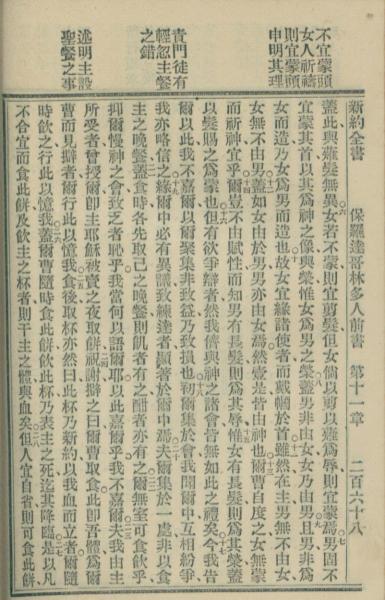 不宜蒙頭
女人祈禱
則宜蒙頭
申明其理
責門徒有
輕忽主餐
之錯
述明主設
聖餐之事
新約全書 保羅達哥林多人前書 第十一章 二百六十八
蓋此與薙髮無異女若不蒙則宜剪髮但女倘以剪以薙爲辱則宜蒙焉男固不
宜蒙其首以其爲神之像與榮惟女爲男之榮蓋男非由女乃女由男且男非爲
女而造乃女爲男而造也故女宜緣諸使者而戴帼於首雖然在主男無不由女
女無不由男蓋如女由於男男亦由女焉然壹是皆由神也爾曹自度之女無蒙
而祈神宜乎爾豈不由賦性而知男有長髮則爲其辱惟女有長髮則爲其榮蓋
以髮賜之爲蒙也但有欲爭辯者然我儕與神之諸會皆無如此之禮矣今我告
爾以此我不嘉爾以爾聚集非致益乃致損也初爾集於會我聞爾中互相紛爭
我亦略信之緣爾中必有異議致練達者顯著於爾中焉夫爾集於一處非以食
主之晚餐蓋食時各先取己之晚餐則飢者有之醋者亦有之爾無室可食飲乎
抑爾慢神之會致乏者恥乎我當何以語爾耶以此嘉爾乎我不嘉爾夫我由主
所受者曾授爾即主耶穌被賣之夜取餅祝謝擘之曰爾曹取食此卽吾體爲爾
曹而見擘者爾行此以憶我食後取杯亦然曰此杯乃新約以我血而立者爾隨
時飲之行此以憶我蓋爾曹隨時食此餅飲此杯乃表主之死迄其降臨是以凡
不合宜而食此餅及飲主之杯者則干主之體與血矣但人宜自省則可食此餅